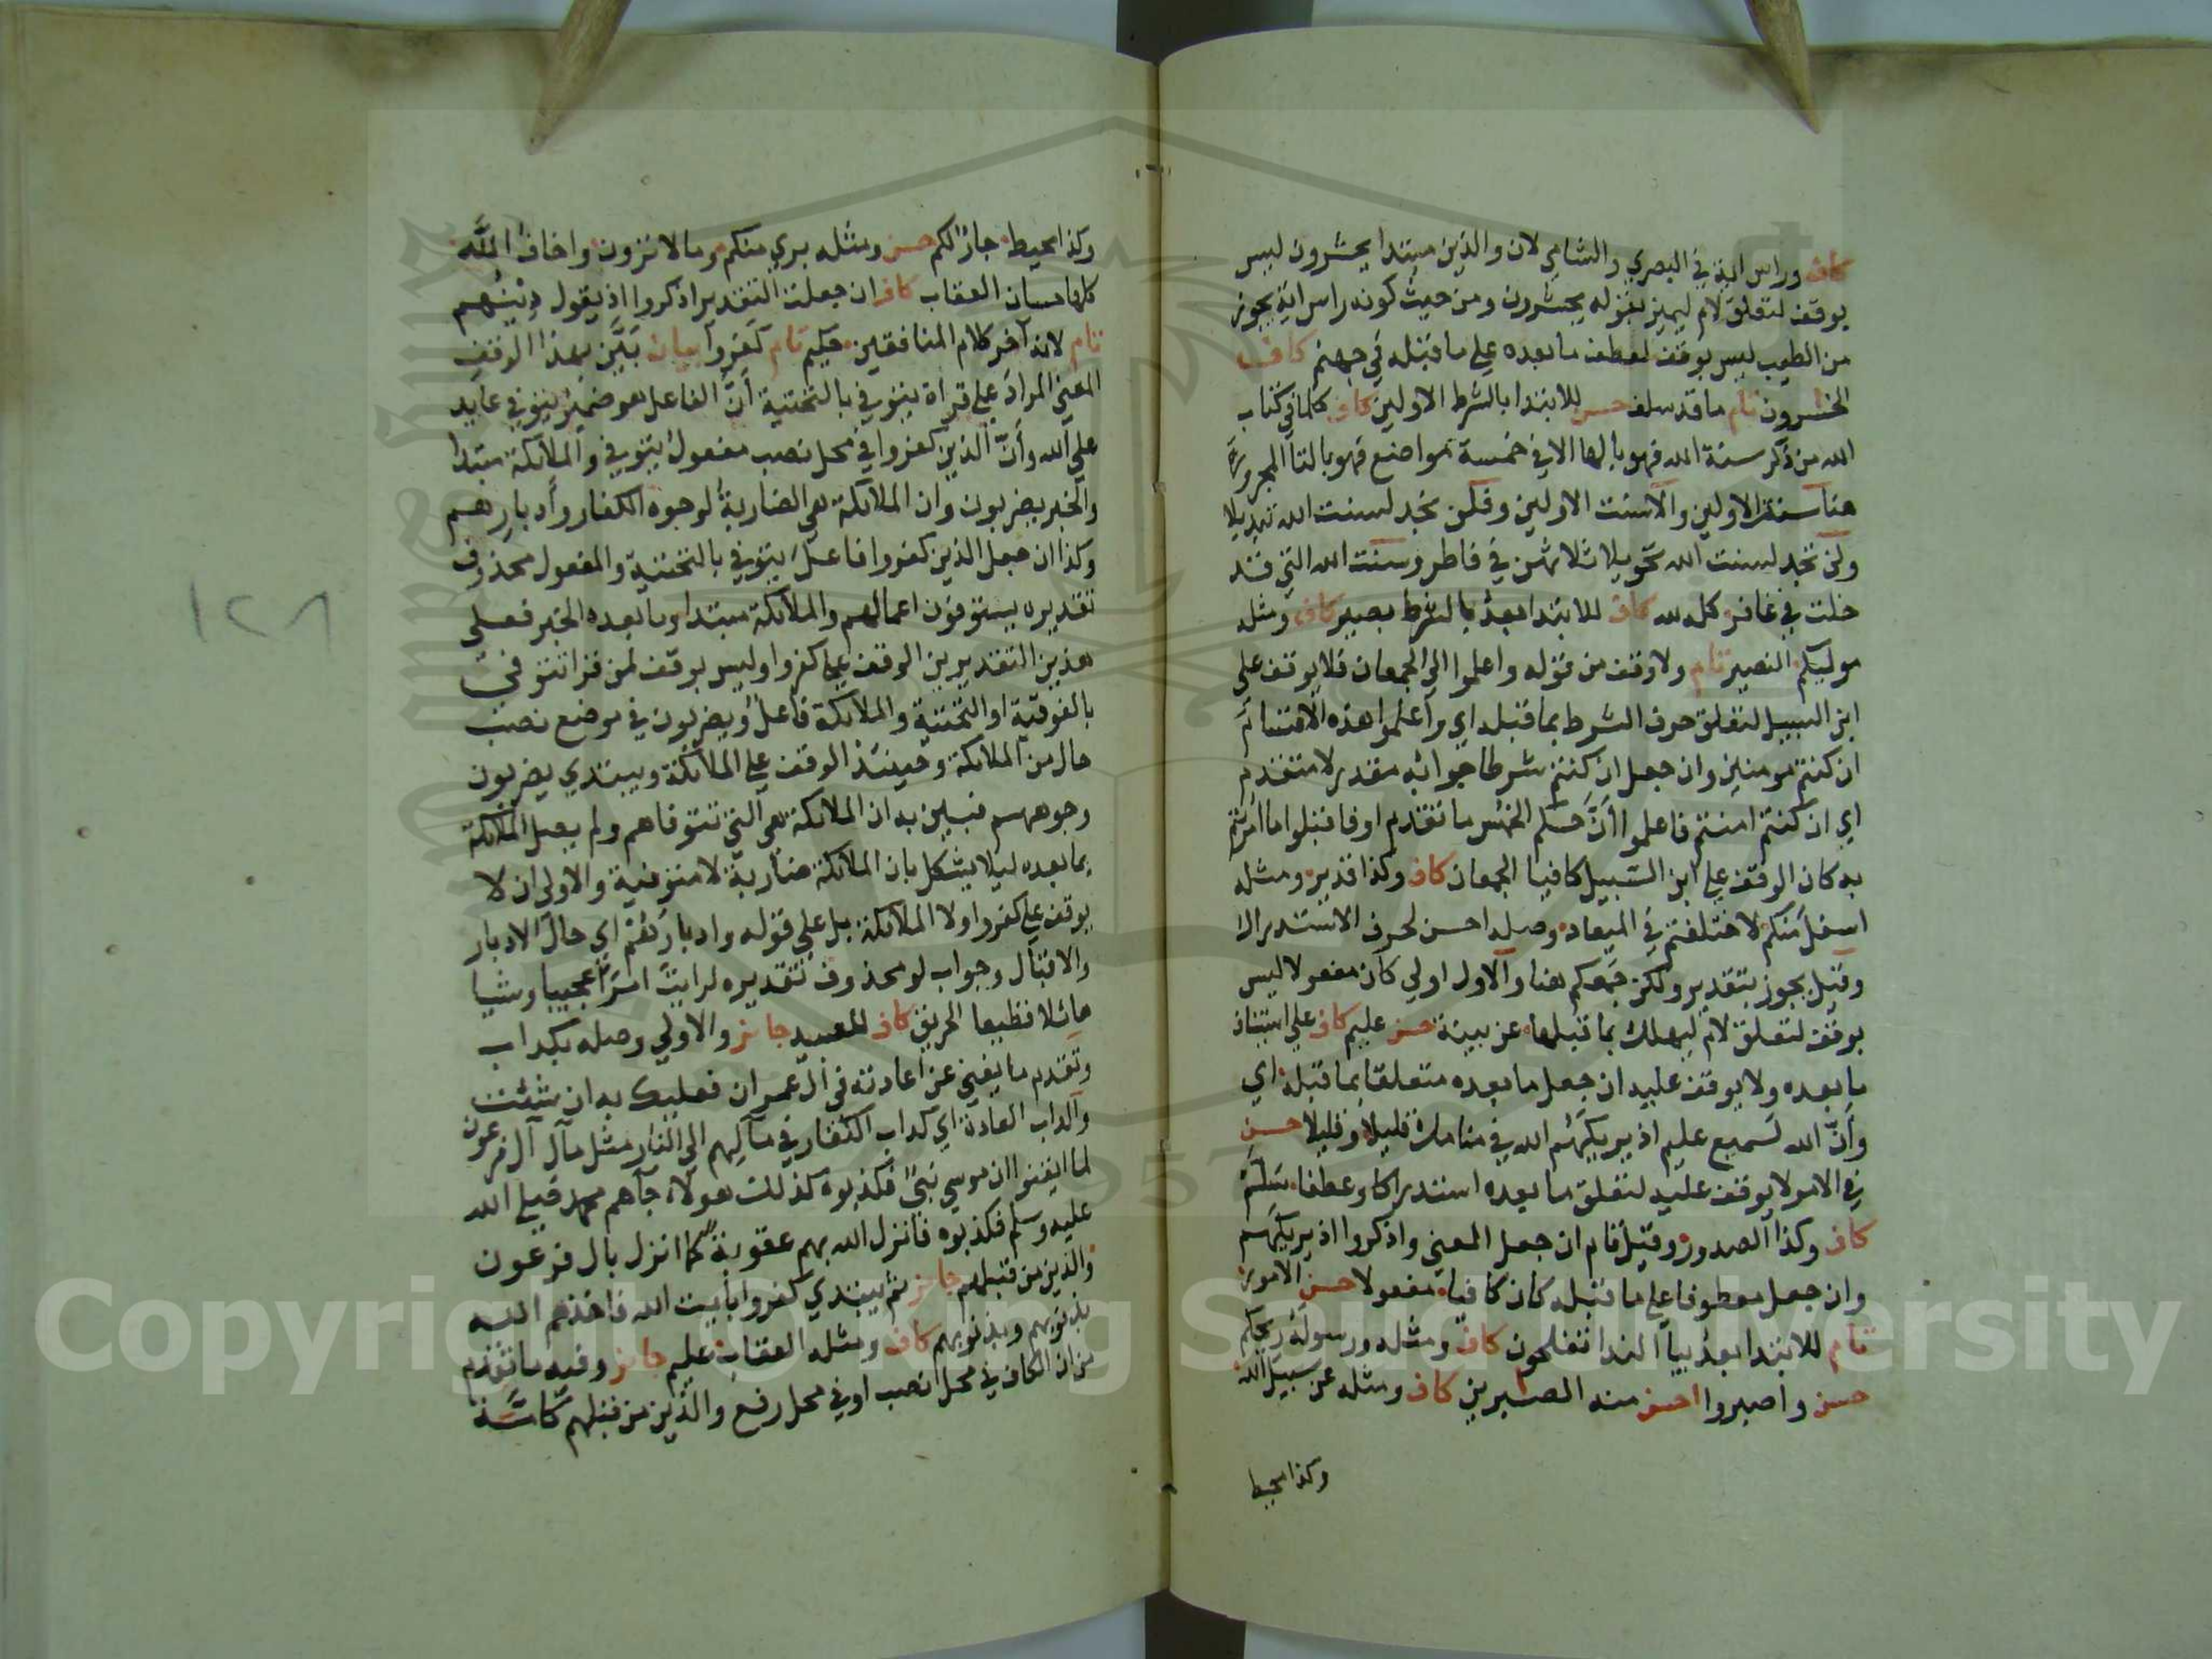 كاف وراس اية في البصري والشامي لان والذين مبتدا يحشرون ليس
يوقف لتعلق لام ليميز بقوله يحشرون ومن حيث كونه راس اية يجوز
من الطيب ليس بوقف لعطف ما بعده على ما قبله في جهنم كاف
الخسرون تام ما قد سلف حسن للابتدا بالشرط الاولين كاف كلما في كتاب
الله من ذكر سنة الله فهو بالها الا في خمسة مواضع فهو بالتا المجرورة
هنا سنت الاولين والا سنت الاولين وفلن تجد لسنت الله تبديلا
ولن تجد لسنت الله تحويلا ثلاثتهن في فاطر وسنت الله التي قد
خلت في غافر كله لله كاف للابتدا بعده بالشرط بصير كاف ومثله
موليكم النصير تام ولا وقف من قوله واعلموا الى الجمعان فلا يوقف على
ابن السبيل لتعلق حرف الشرط بما قبله اي واعلموا هذه الاقسام
ان كنتم مومنين وان جعل ان كنتم شرطا جوابه مقدر لا متقدم
اي ان كنتم امنتم فاعلموا ان حكم الخمس ما تقدم او فاقبلوا ما امرتم
به كان الوقف على ابن السبيل كافيا الجمعان كاف وكذا قدير ومثله
اسفل منكم لاختلفتم في الميعاد وصله احسن لحرف الاستدراك
وقيل يجوز بتقدير ولكن جمعكم هنا والاول اولى كان مفعولا ليس
بوقف لتعلق لام ليهلك بما قبلها عن بينة حسن عليم كاف على استئناف
ما بعده ولا يوقف عليه ان جعل ما بعده متعلقا بما قبله اي
وأن الله لسميع عليم اذ يريكهم الله في منامك قليلا وقليلا حسن
في الامر لا يوقف عليه لتعلق ما بعده استدراكا وعطفا سلم
كاف وكذا الصدور وقيل تام ان جعل المعنى واذكروا اذ يريكهم
وان جعل معطوفا على ما قبله كان كافيا مفعولا حسن الامور
تام للابتدا بعد بيا الندا تفلحون كاف ومثله ورسوله ريحكم
حسن واصبروا احسن منه الصبرين كاف ومثله عن سبيل الله
وكذا محيط
وكذا محيط جار لكم حسن ومثله بري منكم وما لا ترون واخاف الله
كلها حسان العقاب كاف ان جعلت التقدير اذكروا اذ يقول دينهم
تام لانه آخر كلام المنافقين حكيم تام كفروا بيان بين بهذا الوقف
المعنى المراد على قراة يتوفى بالتحتية أن الفاعل هو ضمير يتوفى عايد
على الله وأن الذين كفروا في محل نصب مفعول يتوفى والملائكة مبتدا
والخبر يضربون وان الملائكة هي الضاربة لوجوه الكفار وأدبارهم
وكذا ان جعل الذين كفروا فاعل يتوفى بالتحتية والمفعول محذوف
تقديره يستوفون اعمالهم والملائكة مبتدا وما بعده الخبر فعلى
هذين التقديرين الوقف على كفروا وليس بوقف لمن قرا تتوفى
بالفوقية او التحتية والملائكة فاعل ويضربون في موضع نصب
حال من الملائكة وحينئذ الوقف على الملائكة ويبتدي يضربون
وجوههم فبين به ان الملائكة هي التي تتوفاهم ولم يصل الملائكة
بما بعده ليلا يشكل بان الملائكة ضاربة لا متوفية والاولى ان لا
يوقف على كفروا ولا الملائكة بل على قوله وادبارهم اي حال الادبار
والاقبال وجواب لو محذوف تقديره لرايت امرا عجيبا وشيا
هائلا فظيعا الحريق كاف للعبيد جائز والاولى وصله بكداب
وتقدم ما يغني عن اعادته في ال عمران فعليك به ان شئت
والداب العادة اي كداب الكفار في مآلهم الى النار مثل مآل آل فرعون
لما ايقنوا ان موسى نبي فكذبوه كذلك هولاء جاهم محمد صلى الله
عليه وسلم فكذبوه فانزل الله بهم عقوبة كما انزل بال فرعون
والذين من قبلهم جائز ثم يبتدي كفروا بأيت الله فاخذهم الله
بذنوبهم وبذنوبهم كاف ومثله العقاب عليم جائز وفيه ما تقدم
من ان الكاف في محل نصب او في محل رفع والذين من قبلهم كاف ثمة
١٢٨
Copyright © King Saud University
1957